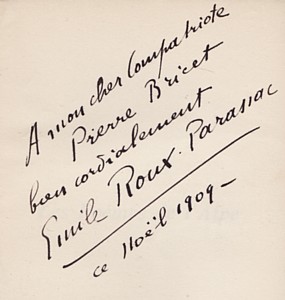 A mon cher Compatriote
Pierre Bricet
bien cordialement
Emile Roux-Parassac
ce Noël 1909 -